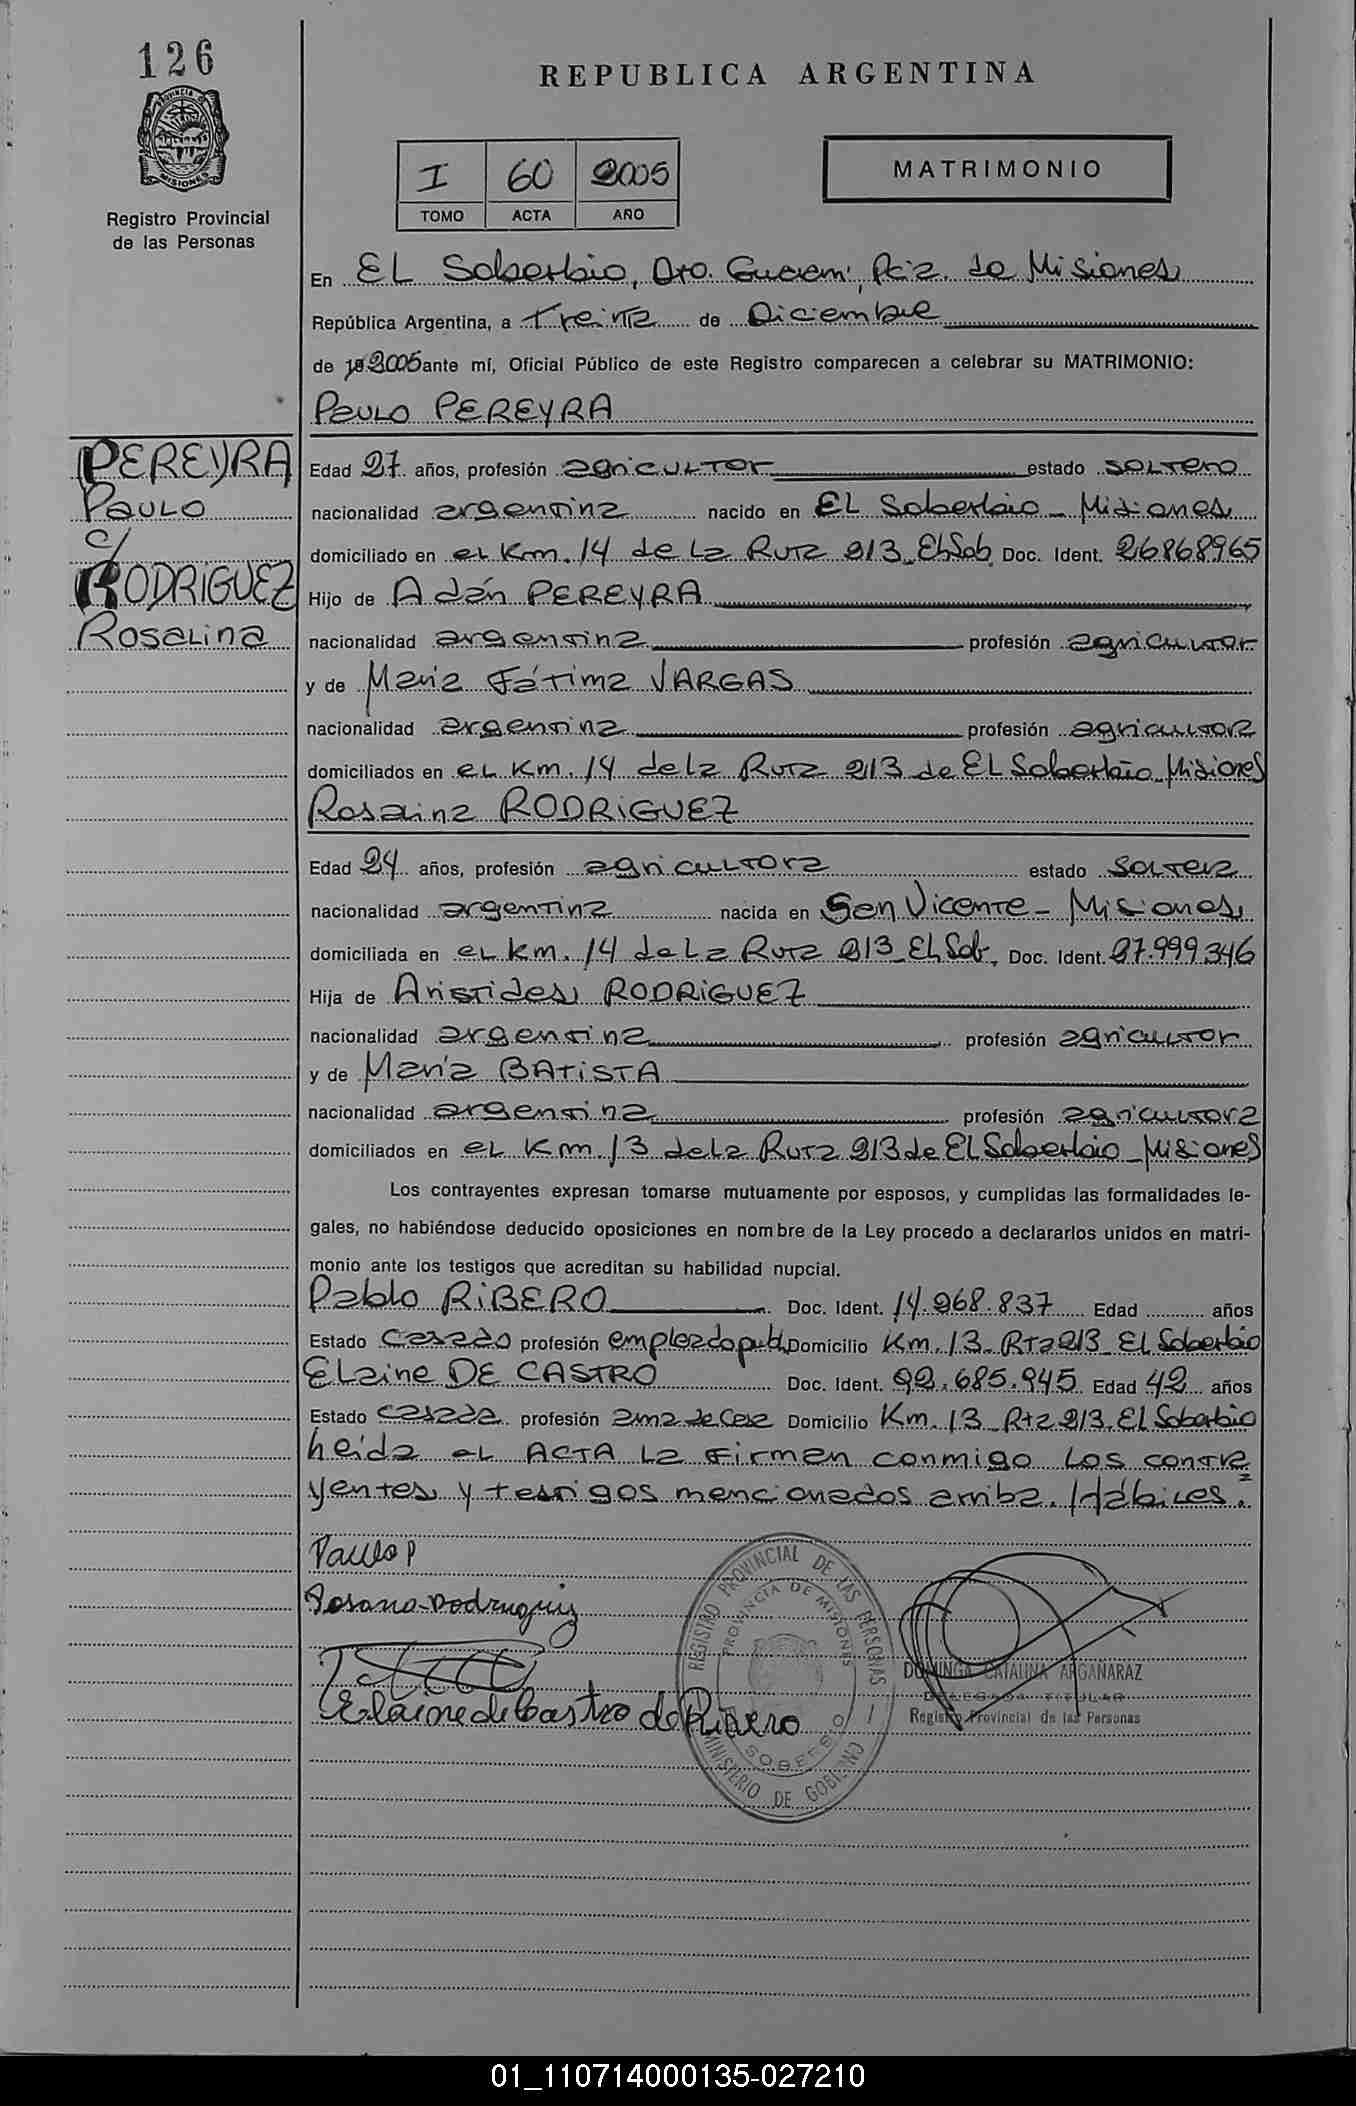 126
PROVINCIA D
MISIONES
Registro Provincial
de las Personas
REPUBLICA ARGENTINA
I 60 2005
TOMO ACTA AÑO
MATRIMONIO
En EL Soberbio, Dto. Guaraní, Pcia. de Misiones
República Argentina, a treinta de Diciembre
de 19 2005 ante mí, Oficial Público de este Registro comparecen a celebrar su MATRIMONIO:
Paulo PEREYRA
PEREYRA
Paulo
c/
RODRIGUEZ
Rosalina
Edad 27 años, profesión agricultor estado soltero
nacionalidad argentina nacido en EL Soberbio - Misiones
domiciliado en el Km. 14 de la Ruta 213 El Sob. Doc. Ident. 26868965
Hijo de Adán PEREYRA
nacionalidad argentina profesión agricultor
y de María Fátima VARGAS
nacionalidad argentina profesión agricultora
domiciliados en el Km. 14 de la Ruta 213 de EL Soberbio - Misiones
Rosalina RODRIGUEZ
Edad 24 años, profesión agricultora estado soltera
nacionalidad argentina nacida en San Vicente - Misiones
domiciliada en el Km. 14 de la Ruta 213 El Sob. Doc. Ident. 27.999.346
Hija de Aristides RODRIGUEZ
nacionalidad argentina profesión agricultor
y de María BATISTA
nacionalidad argentina profesión agricultora
domiciliados en el Km. 13 de la Ruta 213 de El Soberbio - Misiones
Los contrayentes expresan tomarse mutuamente por esposos, y cumplidas las formalidades le-
gales, no habiéndose deducido oposiciones en nombre de la Ley procedo a declararlos unidos en matri-
monio ante los testigos que acreditan su habilidad nupcial.
Pablo RIBERO Doc. Ident. 14.968.837 Edad años
Estado casado profesión empleado pub. Domicilio Km. 13 Rta 213 El Soberbio
Elaine DE CASTRO Doc. Ident. 92.685.945 Edad 42 años
Estado casada profesión ama de casa Domicilio Km. 13 Rta 213 El Soberbio
Leída el ACTA la firman conmigo los contra
yentes y testigos mencionados arriba. Hábiles.
Paulo P
Rosana Rodriguiz
Elaine de Castro de Ribero
REGISTRO PROVINCIAL DE LAS PERSONAS
PROVINCIA DE MISIONES
SOBERBIO
MINISTERIO DE GOBIERNO
DOMINGA CATALINA ARGAÑARAZ
DELEGADA TITULAR
Registro Provincial de las Personas
01_110714000135-027210